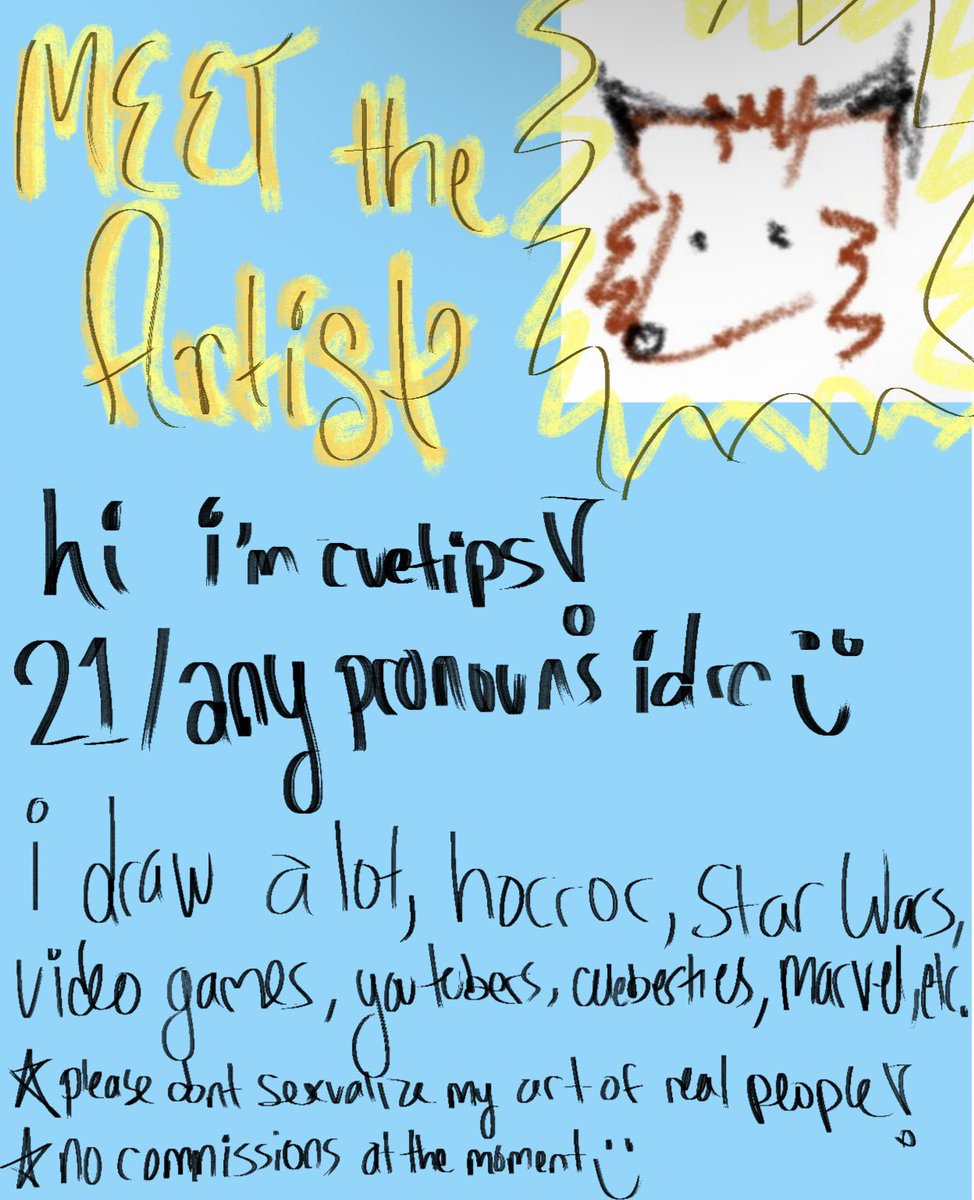 MEET the
Artist
hi i'm cuetips!
21/any pronouns idrc :)
i draw a lot, horror, Star Wars,
video games, youtubers, celeberties, Marvel, etc.
☆please dont sexualize my art of real people!
☆no commissions at the moment :)